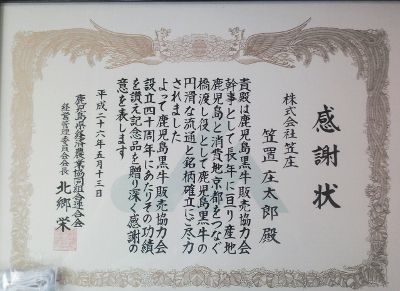 感謝状
株式会社笠庄
笠置庄太郎殿
貴殿は鹿児島黒牛販売協力会
幹事として長年に亘り産地
鹿児島と消費地京都をつなぐ
橋渡し役として鹿児島黒牛の
円滑な流通と銘柄確立にご尽力
されました
よって鹿児島黒牛販売協力会
設立四十周年にあたりその功績
を讃え記念品を贈り深く感謝の
意を表します
平成二十六年五月十三日
鹿児島県経済農業協同組合連合会
経営管理委員会会長 北郷栄